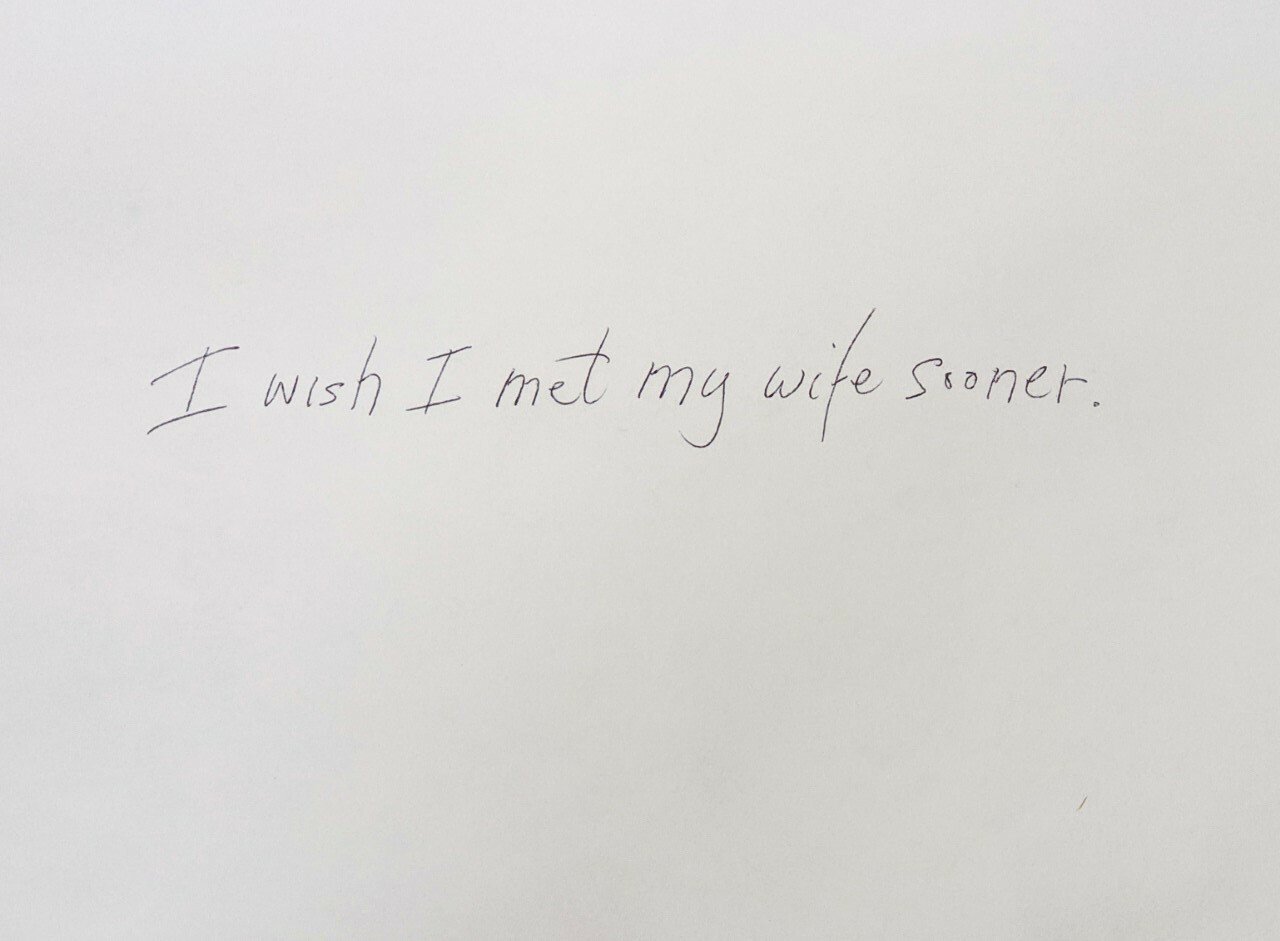 I wish I met my wife sooner.